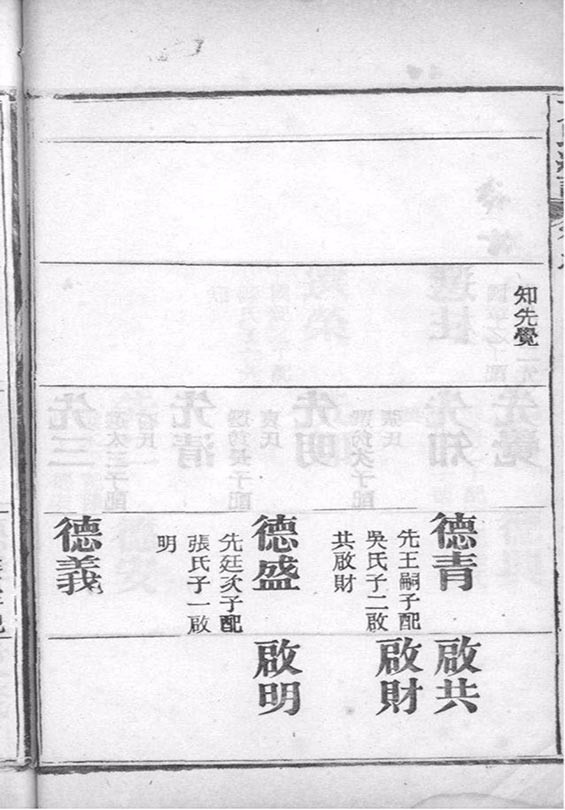 知先覺
德青
先王嗣子配
吳氏子二啟
共啟財
德盛
先廷次子配
張氏子一啟
明
德義
啟共
啟財
啟明